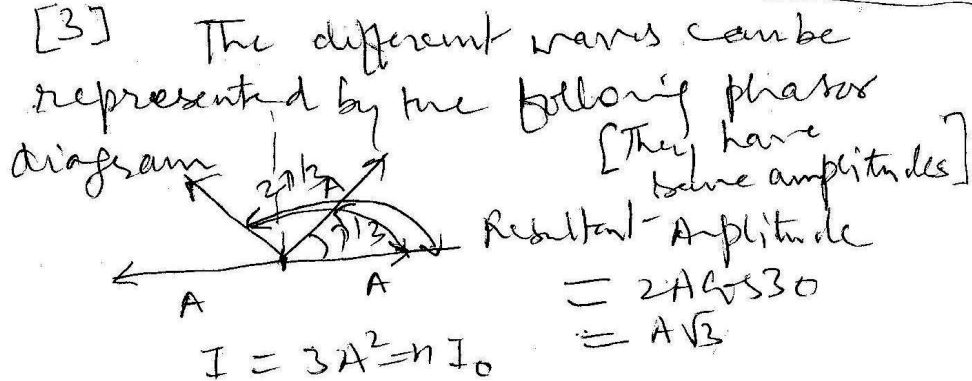 [3] The different waves can be
represented by the following phasor
diagram [They have
same amplitudes]
2π/3 A
π/3
A
A
Resultant Amplitude
= 2A cos 30
= A√3
I = 3A² = n I₀